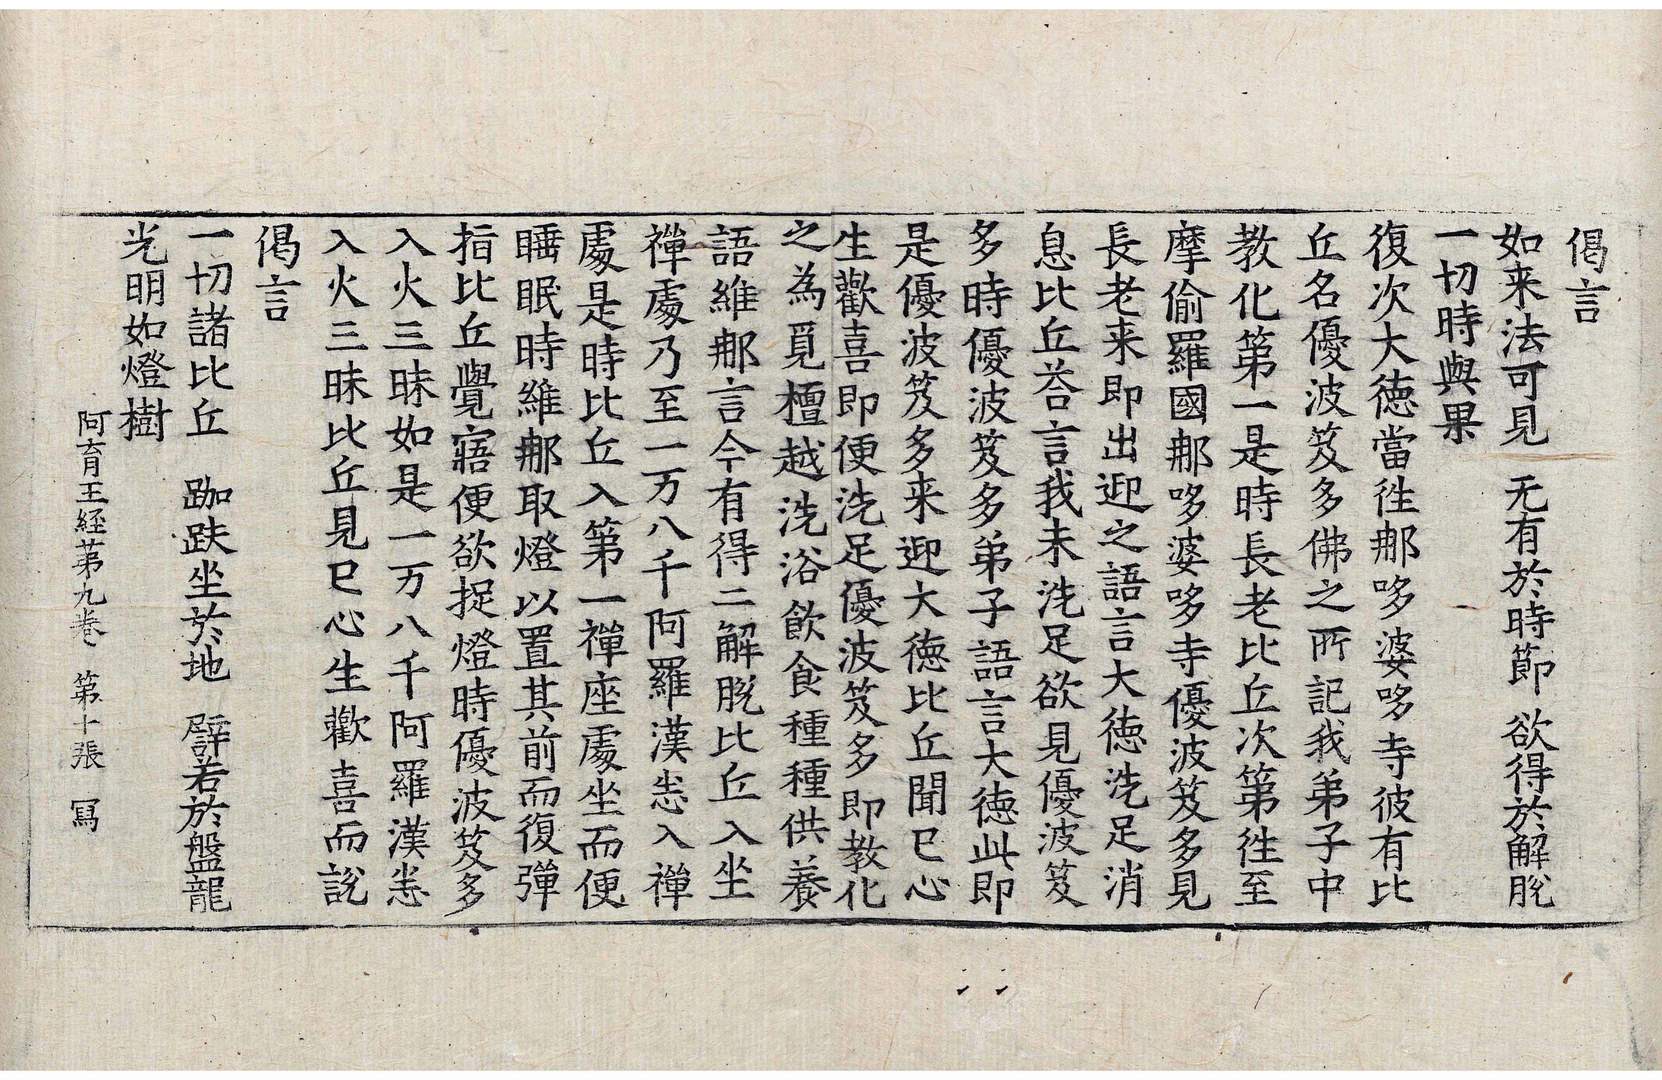 偈言
如来法可見　无有於時節　欲得於解脫
一切時與果
復次大徳當徃郍哆婆哆寺彼有比
丘名優波笈多佛之所記我弟子中
教化第一是時長老比丘次第徃至
摩偷羅國郍哆婆哆寺優波笈多見
長老来即出迎之語言大徳洗足消
息比丘荅言我未洗足欲見優波笈
多時優波笈多弟子語言大徳此即
是優波笈多来迎大徳比丘聞已心
生歡喜即便洗足優波笈多即教化
之為覓檀越洗浴飲食種種供養
語維郍言今有得二解脫比丘入坐
禪處乃至一万八千阿羅漢恚入禪
處是時比丘入第一禪座處坐而便
睡眠時維郍取燈以置其前而復彈
指比丘覺寤便欲捉燈時優波笈多
入火三昧如是一万八千阿羅漢恚
入火三昧比丘見已心生歡喜而說
偈言
一切諸比丘　跏趺坐於地　譬若於盤龍
光明如燈樹
阿育王経第九卷　第十張　冩